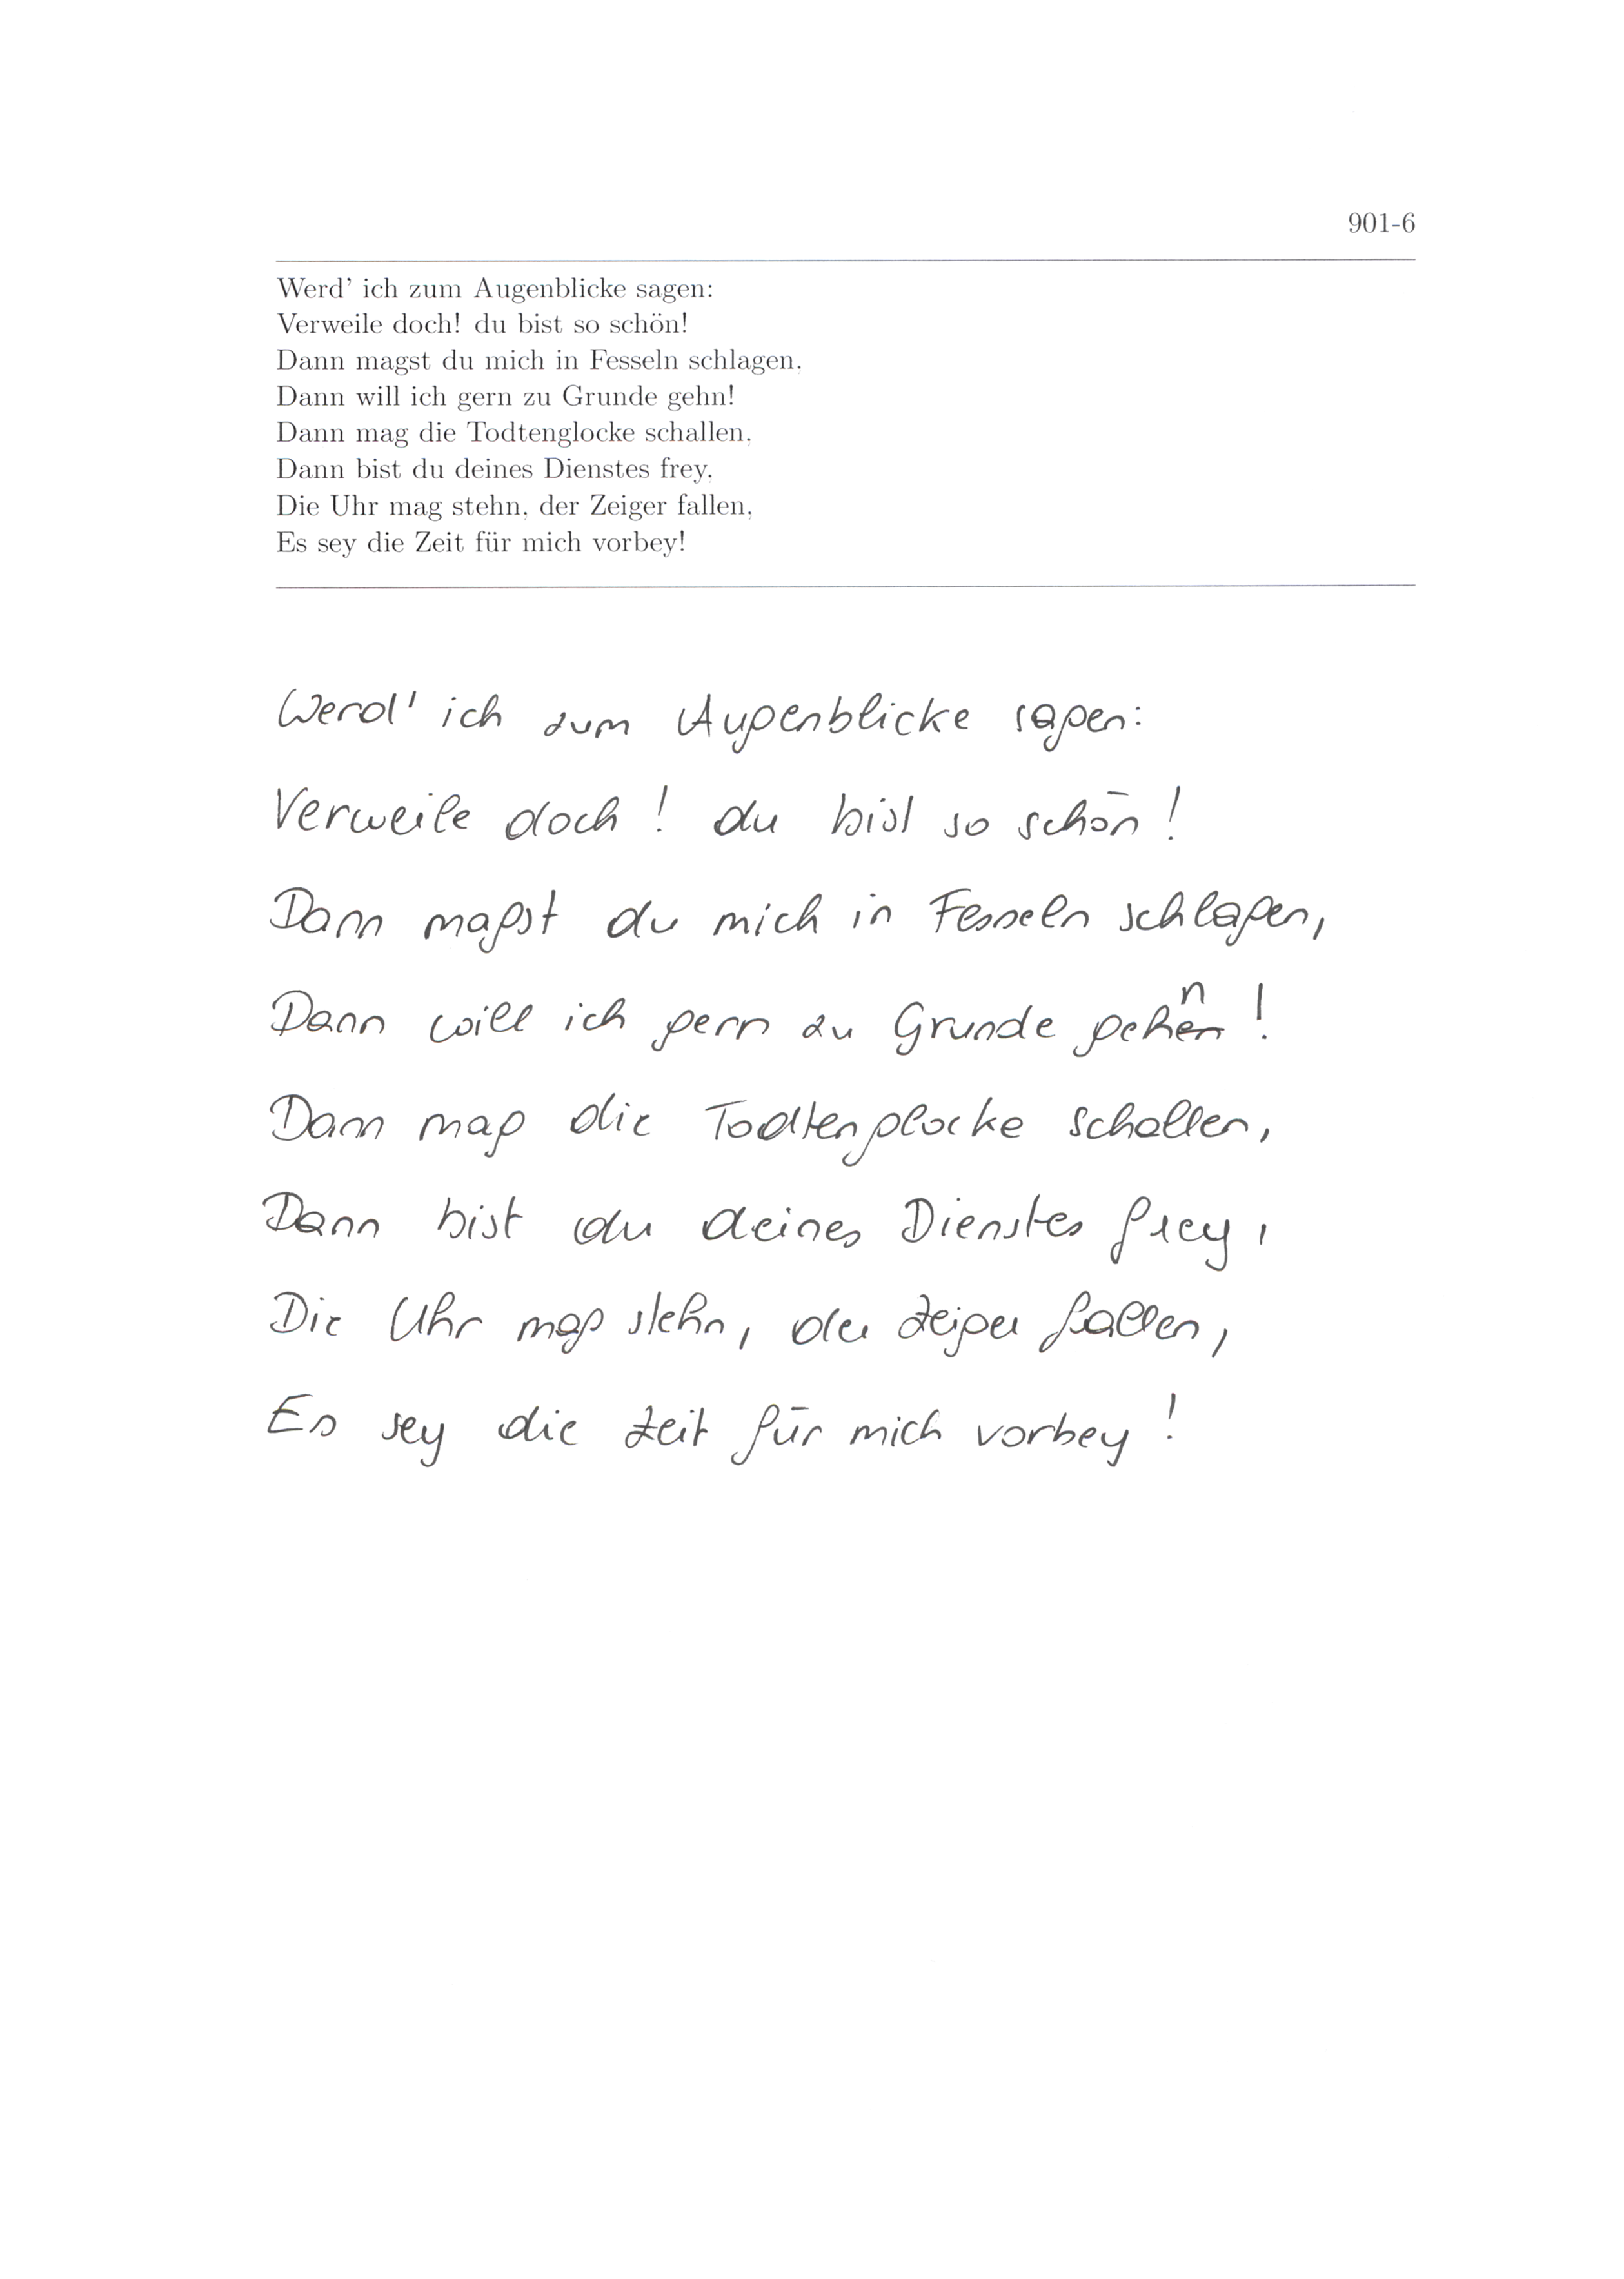 901-6
Werd' ich zum Augenblicke sagen:
Verweile doch! du bist so schön!
Dann magst du mich in Fesseln schlagen,
Dann will ich gern zu Grunde gehn!
Dann mag die Todtenglocke schallen,
Dann bist du deines Dienstes frey,
Die Uhr mag stehn, der Zeiger fallen,
Es sey die Zeit für mich vorbey!
Werd' ich zum Augenblicke sagen:
Verweile doch! du bist so schön!
Dann magst du mich in Fesseln schlagen,
Dann will ich gern zu Grunde gehn!
Dann mag die Todtenglocke schallen,
Dann bist du deines Dienstes frey,
Die Uhr mag stehn, der Zeiger fallen,
Es sey die Zeit für mich vorbey!